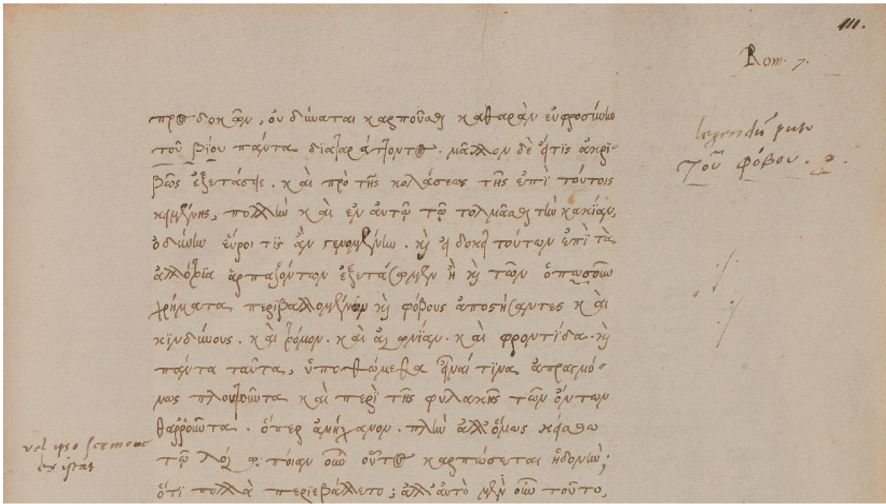 111.
Rom. 7.
προσδοκᾶν, οὐ δύναται καρποῦσθαι καθαρὰν εὐφροσύνην
τοῦ βίου πάντα διαταράττοντος. μᾶλλον δὲ εἴ τις ἀκρι-
βῶς ἐξετάσειε. καὶ πρὸ τῆς κολάσεως τῆς ἐπὶ τούτοις
κειμένης, πολλὴν καὶ ἐν αὐτῷ τῷ τολμᾶσθαι τὴν κακίαν,
ὀδύνην εὕροι τὶς ἂν γενομένην. καὶ εἰ δοκεῖ τούτων ἐπὶ τὰ
ἀλλότρια ἁρπαζόντων ἐξετάσωμεν ἢ καὶ τῶν ὁπωσοῦν
χρήματα περιβαλλομένων καὶ φόβους ἀποστήσαντες καὶ
κινδύνους. καὶ τρόμον. καὶ ἀγωνίαν. καὶ φροντίδα. καὶ
πάντα ταῦτα, ὑποθώμεθα εἶναί τινα ἀπραγμό-
νως πλουτοῦντα καὶ περὶ τῆς φυλακῆς τῶν ὄντων
θαρροῦντα. ὅπερ ἀμήχανον. πλὴν ἀλλ' ὅμως κείσθω
τῷ λόγῳ· ποίαν οὖν οὗτος καρπώσεται ἡδονήν;
ὅτι πολλὰ περιεβάλλετο; ἀλλ' αὐτὸ μὲν οὖν τοῦτο,
legendū puto
Τοῦ φόβου.
vel ipso sermone